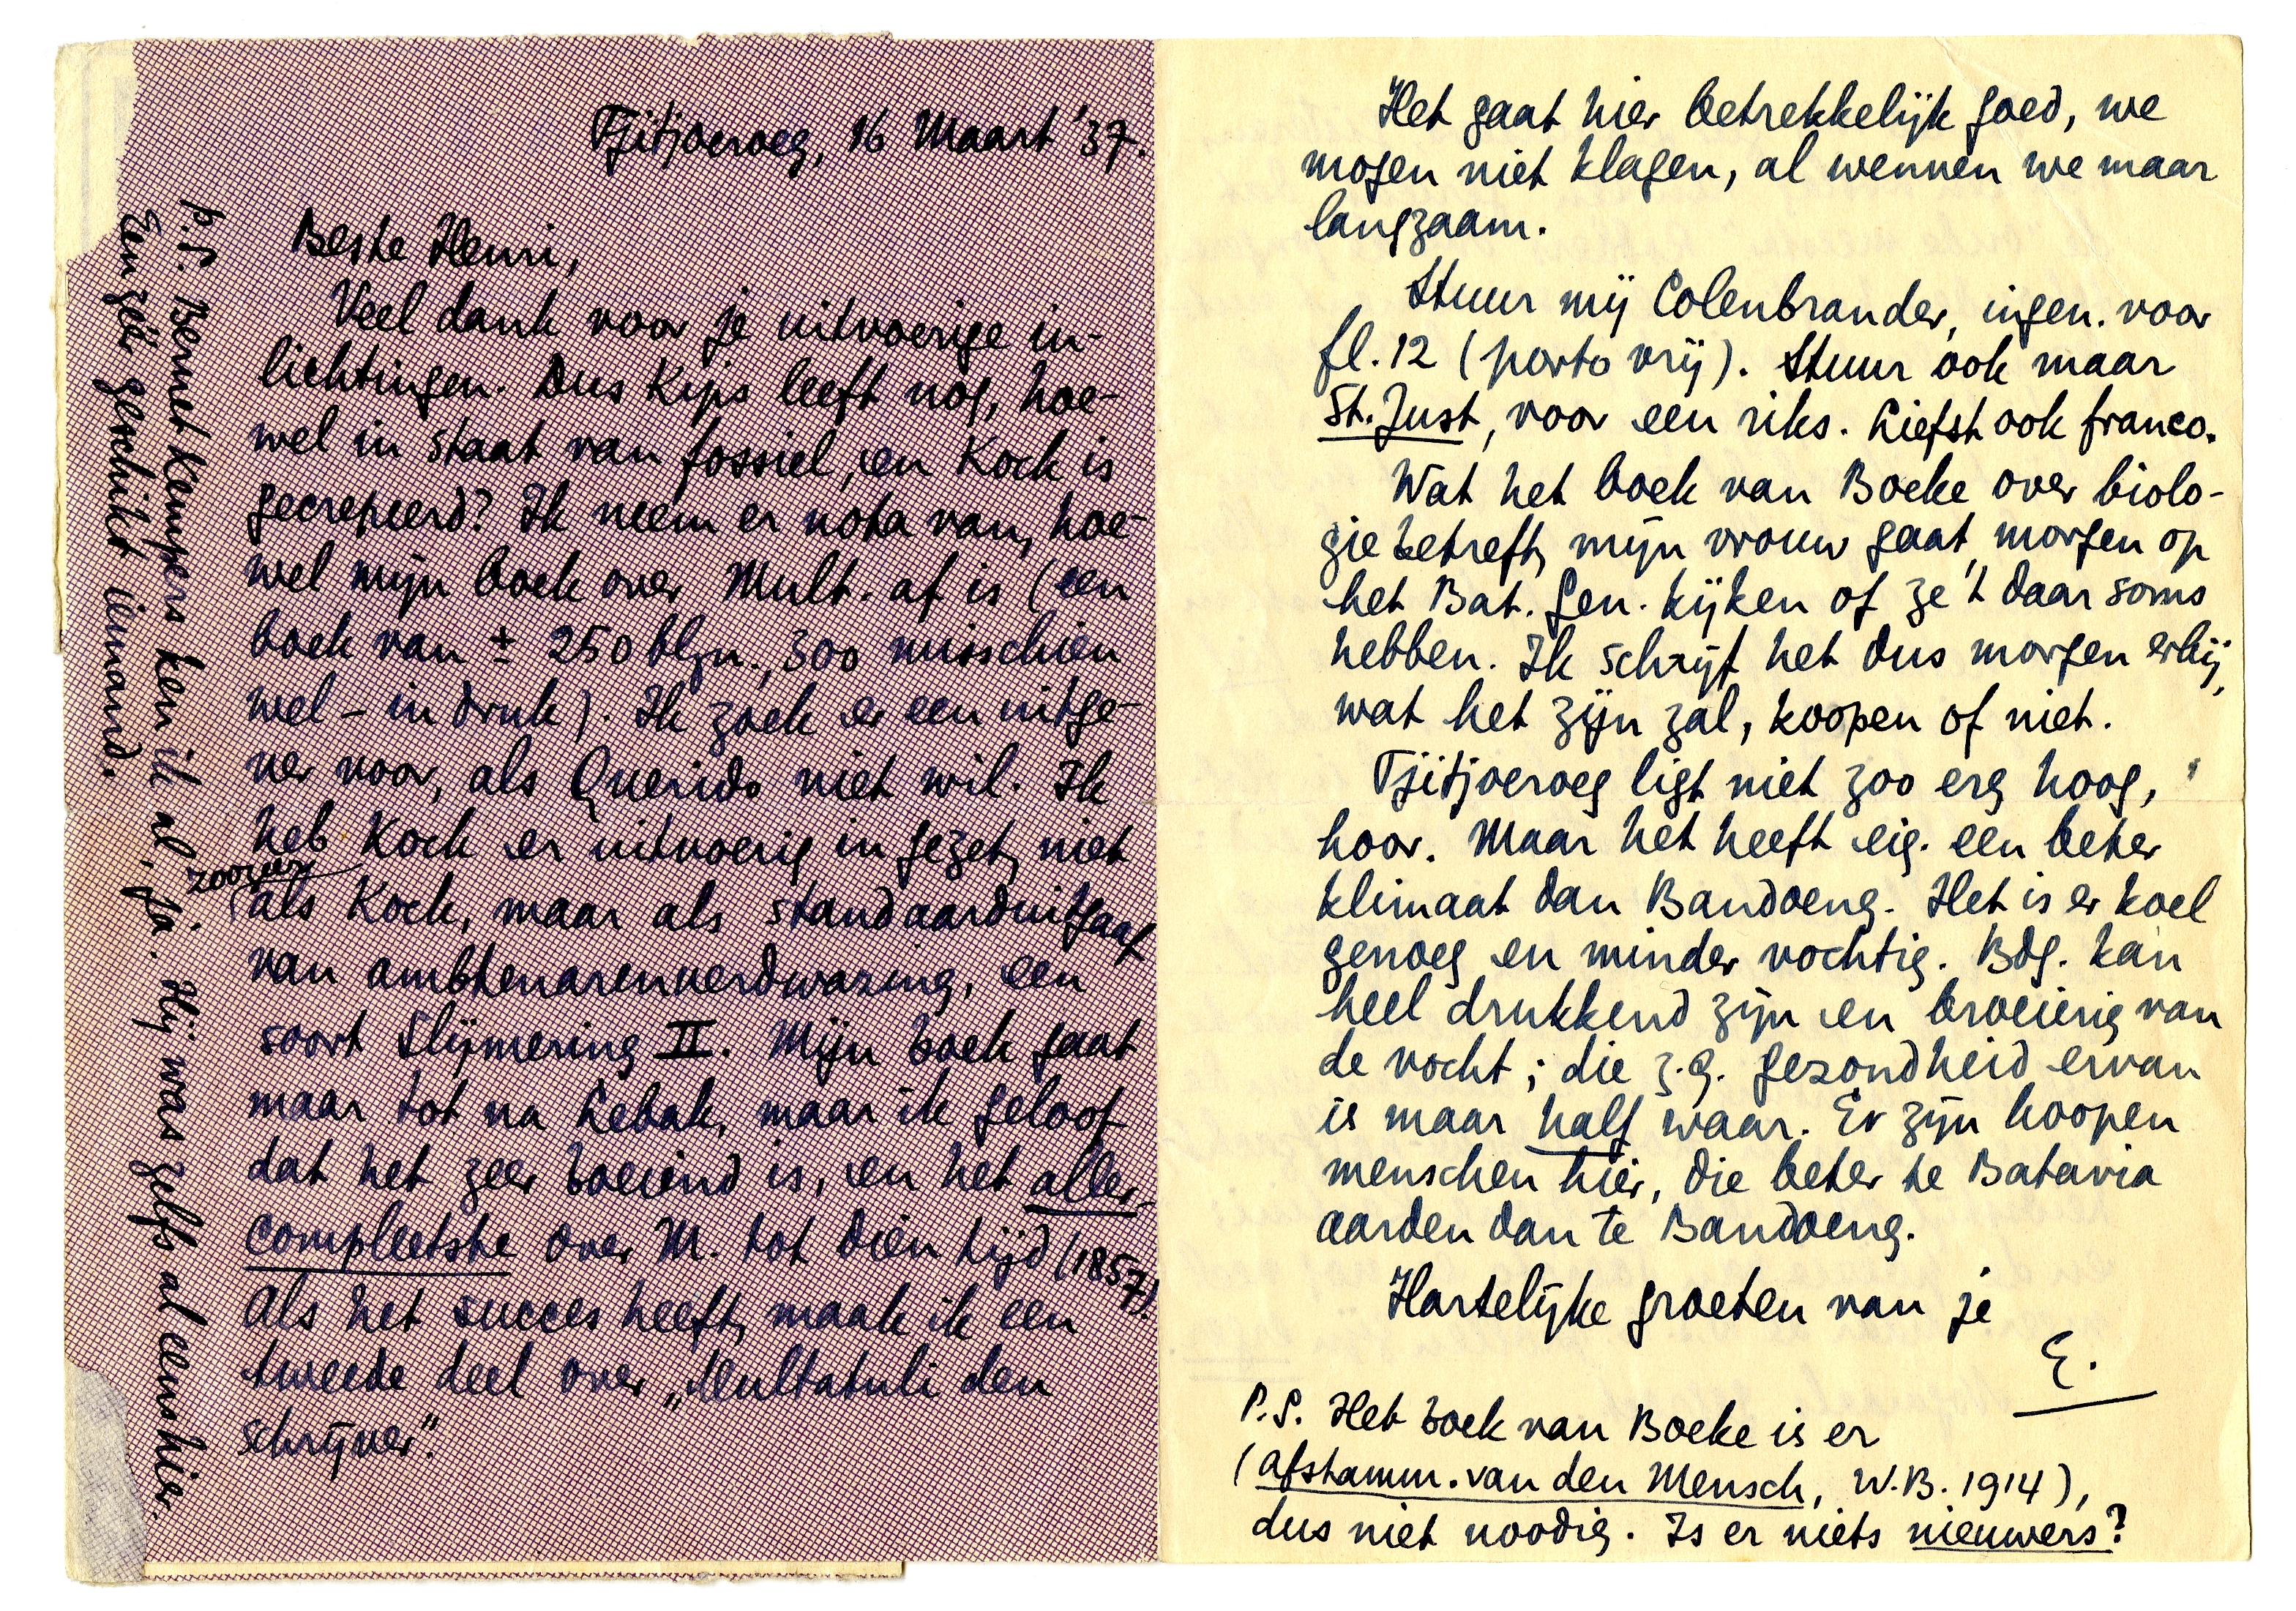 Tjitjoeroeg, 16 Maart '37.
Beste Henri,
Veel dank voor je uitvoerige in-
lichtingen. Dus Kips leeft nog, hoe-
wel in staat van fossiel, en Kock is
gecrepeerd? Ik neem er nota van, hoe-
wel mijn boek over Mult. af is (een
boek van ± 250 blzn., 300 misschien
wel – in druk). Ik zoek er een uitge-
ver voor, als Querido niet wil. Ik
heb Kock er uitvoerig in gezet, niet
zoozeer
als Kock, maar als standaarduitgaaf
van ambtenarenverdwazing, een
soort Slijmering II. Mijn boek gaat
maar tot na Lebak, maar ik geloof
dat het zeer boeiend is, en het aller-
compleetste over M. tot dien tijd (1857).
Als het succes heeft, maak ik een
tweede deel over „Multatuli den
schrijver".
P.S. Bernet Kempers ken ik al, ja. Hij was zelfs al eens hier.
Een zéér geschikt iemand.
Het gaat hier betrekkelijk goed, we
mogen niet klagen, al wennen we maar
langzaam.
Stuur mij Colenbrander, ingen. voor
fl. 12 (porto vrij). Stuur ook maar
St. Just, voor een riks. Liefst ook franco.
Wat het boek van Boeke over biolo-
gie betreft, mijn vrouw gaat morgen op
het Bat. Gen. kijken of ze 't daar soms
hebben. Ik schrijf het dus morgen erbij,
wat het zijn zal, koopen of niet.
Tjitjoeroeg ligt niet zoo erg hoog,
hoor. Maar het heeft eig. een beter
klimaat dan Bandoeng. Het is er koel
genoeg en minder vochtig. Bdg. kan
heel drukkend zijn en broeierig van
de vocht; die z.g. gezondheid ervan
is maar half waar. Er zijn hoopen
menschen hier, die beter te Batavia
aarden dan te Bandoeng.
Hartelijke groeten van je
E.
P.S. Het boek van Boeke is er
(Afstamm. van den Mensch, W.B. 1914),
dus niet noodig. Is er niets nieuwers?